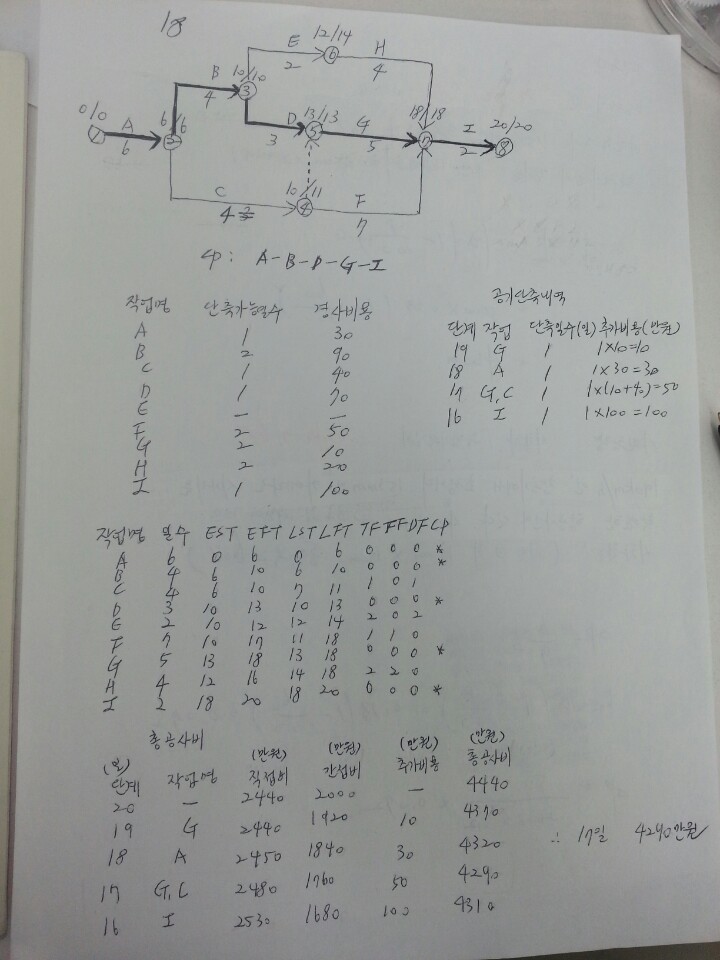 18
E 12/14 H
2 6 4
B 10/10
4 3
0/0 A 6/6 D 13/13 G 18/18 I 20/20
1 6 2 3 5 5 7 2 8
C 10/11 F
4 4 7
CP : A-B-D-G-I
공기단축내역
작업명 단축가능일수 경사비용
A 1 30
B 2 90
C 1 40
D 1 70
E — —
F 2 50
G 2 10
H 2 20
I 1 100
단계 작업 단축일수(일) 추가비용(만원)
19 G 1 1×10=10
18 A 1 1×30=30
17 G,C 1 1×(10+40)=50
16 I 1 1×100=100
작업명 일수 EST EFT LST LFT TF FF DF CP
A 6 0 6 0 6 0 0 0 *
B 4 6 10 6 10 0 0 0 *
C 4 6 10 7 11 1 0 1
D 3 10 13 10 13 0 0 0 *
E 2 10 12 12 14 2 0 2
F 7 10 17 11 18 1 1 0
G 5 13 18 13 18 0 0 0 *
H 4 12 16 14 18 2 2 0
I 2 18 20 18 20 0 0 0 *
총공사비
(일) (만원) (만원) (만원) (만원)
단계 작업명 직접비 간접비 추가비용 총공사비
20 — 2440 2000 — 4440
19 G 2440 1920 10 4370
18 A 2450 1840 30 4320
17 G,C 2480 1760 50 4290
16 I 2530 1680 100 4310
∴ 17일 4290만원